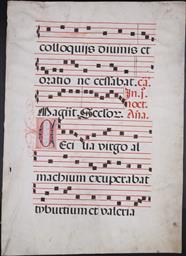 colloquijs diuinis et
oratio ne cessabat. ca.
In .ij.
noct.
Magñt. Seclor. Aña.
Ceci lia virgo al
machium exuperabat
tyburtium et valeria